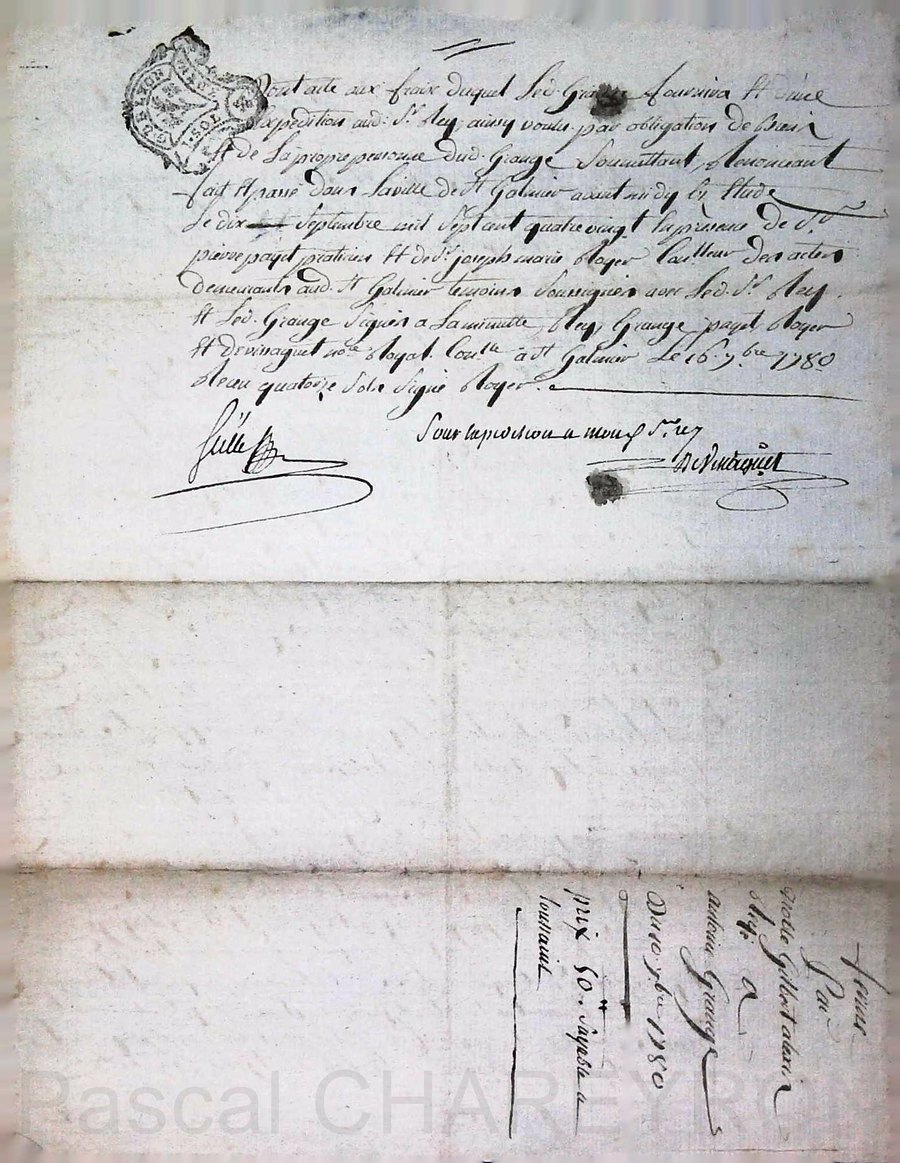 Dont acte aux fraix duquel led. Grange fournira et d'une
Expédition aud. Sr. Rey, ainsy voulu par obligation de biens
Et de la propre personne dud. Grange Soumettant, Renonceant
fait Et passé dans la ville de St Galmier avant midy Et Etude
Le dix Septembre mil Septcent quatrevingt En présence de Sr.
pierre payet praticien Et de Sr. joseph marie Royer Coulleur des actes
demeurants aud. St Galmier temoins Soussignés avec led. Sr. Rey
Et led. Grange Signés a la minutte, Rey, Grange, payet Royer
Et Devinaguet nore Royal. Conlle à St Galmier Le 16 7bre 1780
Reçu quatorze sols Signé Royer
Gille
Pour Expedition a mond Sr rey
DeVinaguet
GÉN LYON
ferme
Par
noble Gilbert alexis
Rey
A
antoine Grange
Du 10 7bre 1780
prix 50 # payable a
toussaint
Pascal CHAREYRON